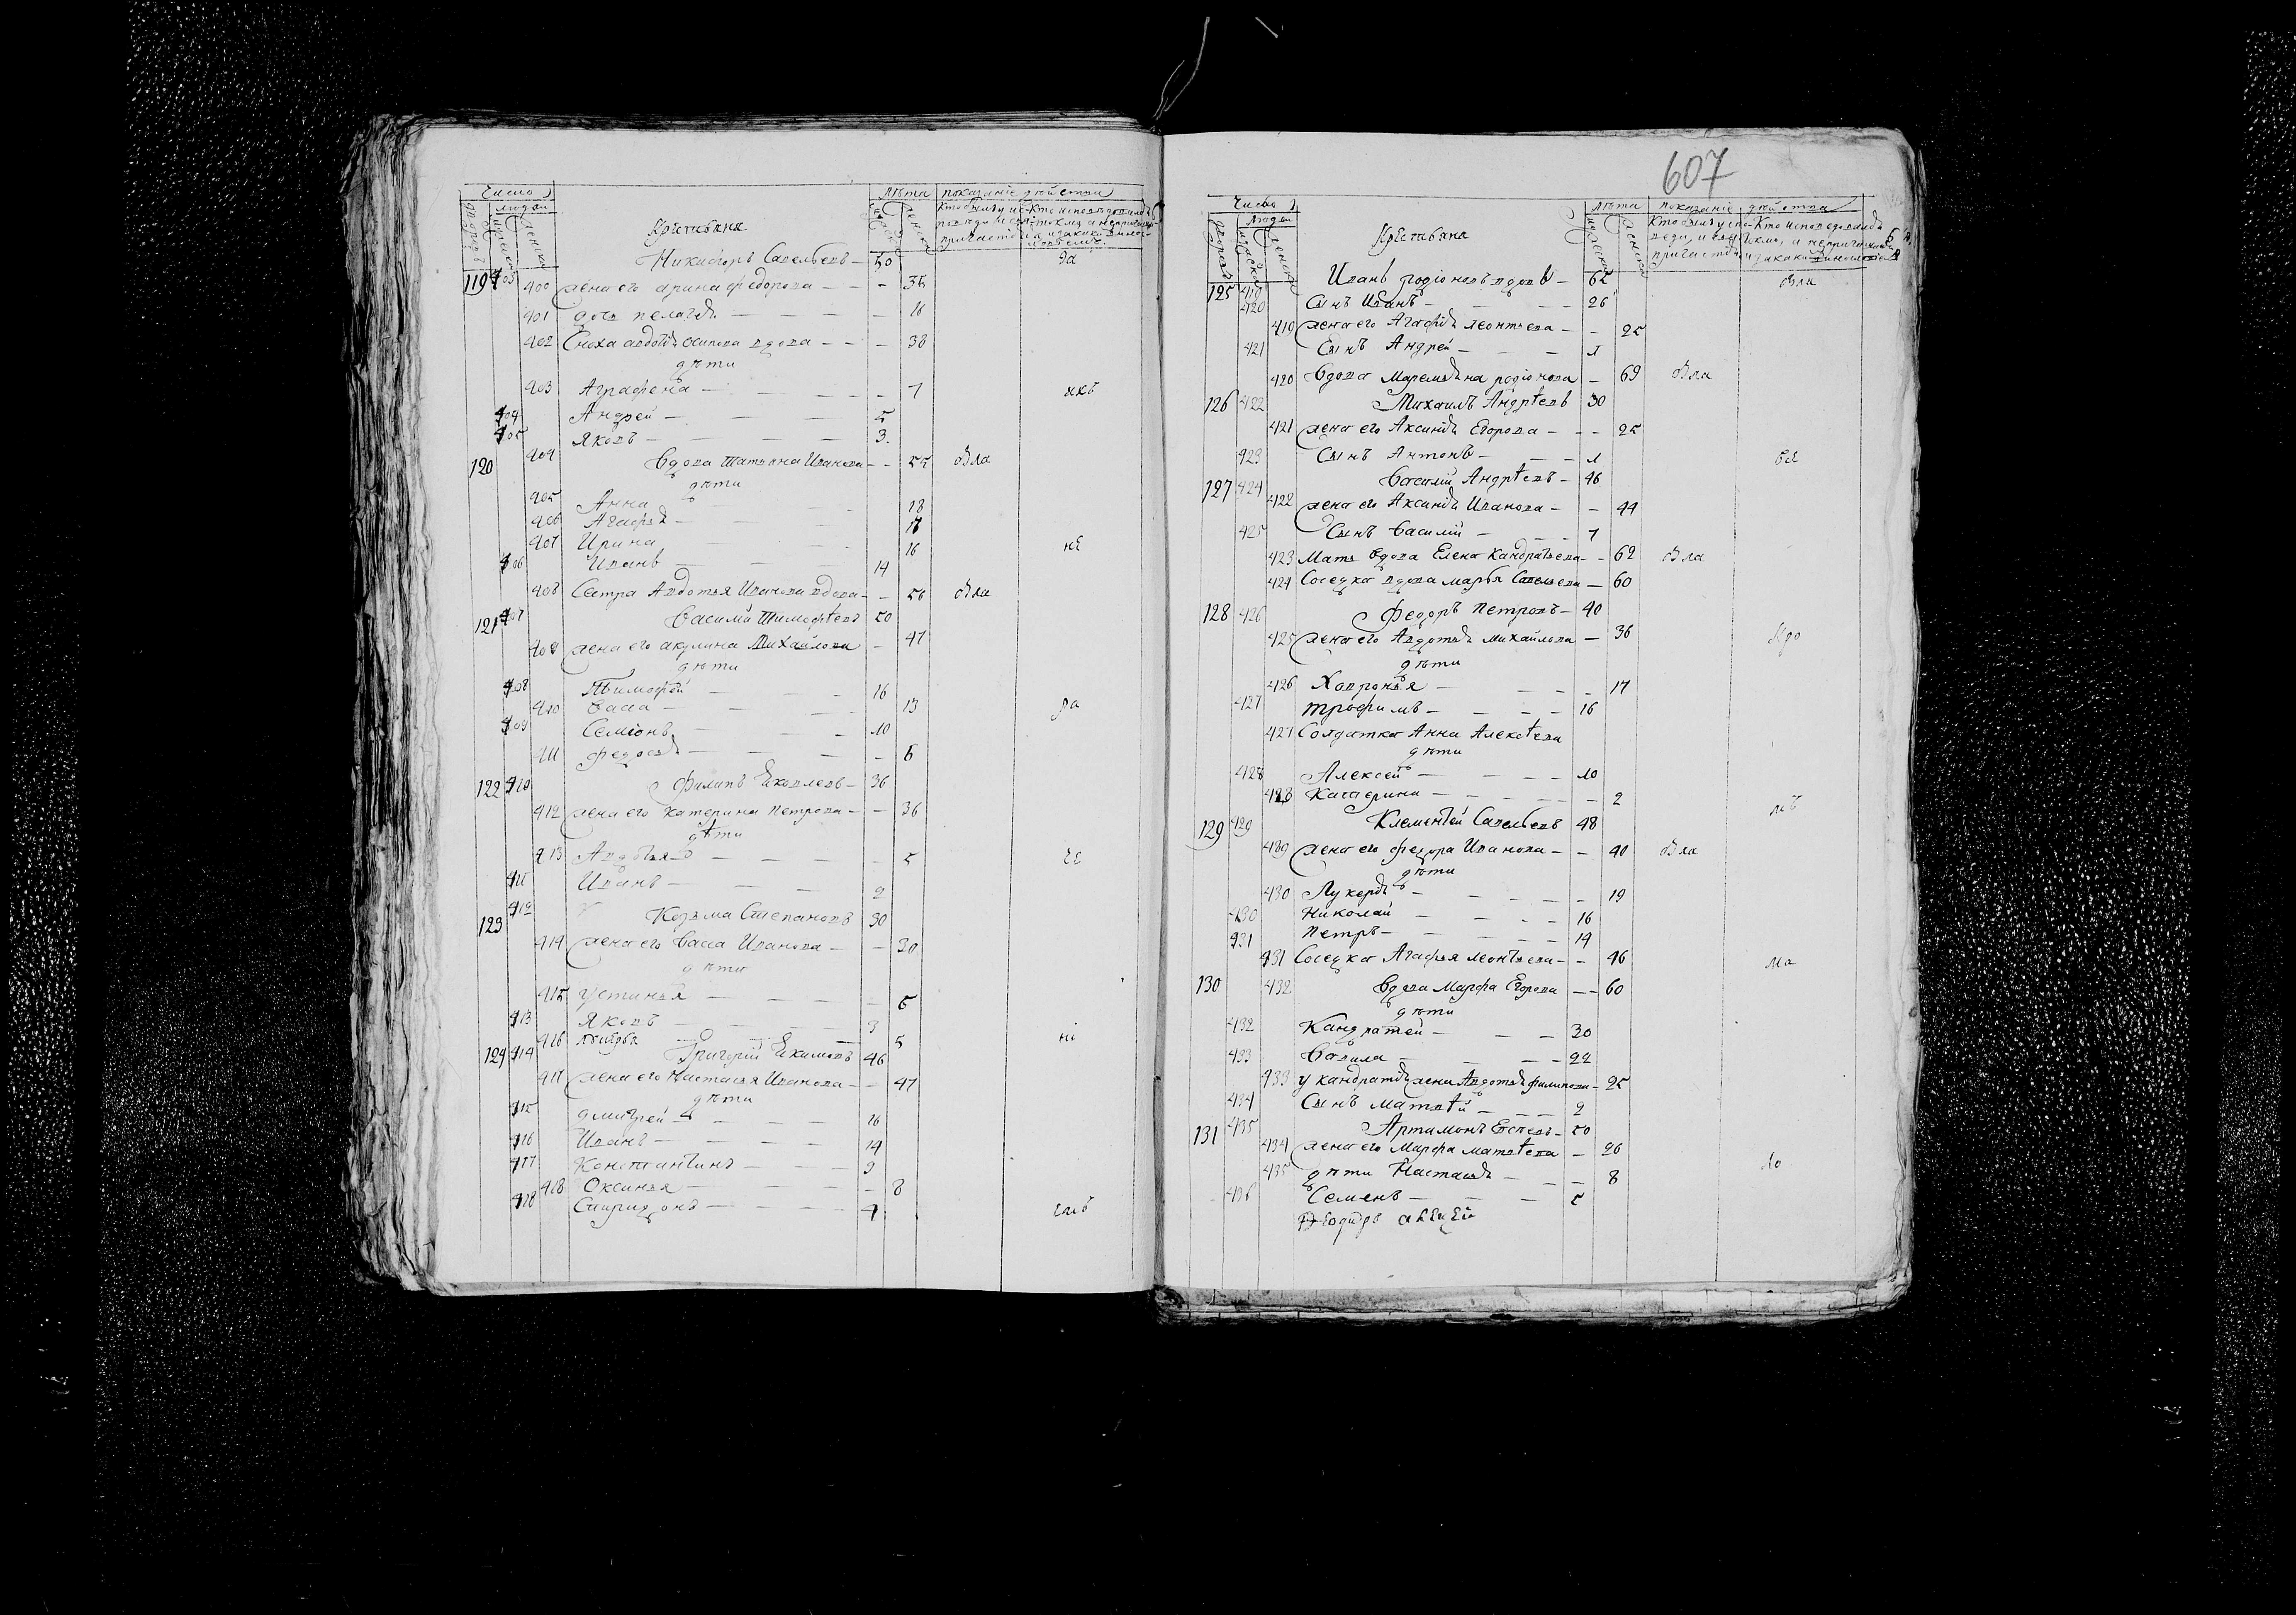 607
Число
людей
лѣта показанiе дѣйства
дворовъ
женска
Крестьяне
Никифоръ Савельевъ — 50
да
119 403
400 жена его арина федорова — 35
401 дочь пелагѣя — 18
402 Сноха авдотiя осипова вдова — 38
дѣти
403 Аграфена — 7
якъ
404 Андрей — 5
405 Яковъ — 3
120 404 Вдова татьяна Иванова — 55 была
дѣти
405 Анна 18
406 Агафья — 17
407 Ирина 16
не
406 Иванъ — 14
408 Сестра Авдотья Иванова вдова — 50 была
121 407 Василий Тимофеевъ 50
409 жена его акулина Михайлова — 47
дѣти
408 Тимофей — 16
410 Васса — 13
ра
409 Семiонъ — 10
411 федосья — 6
122 410 Филипъ Яковлевъ — 36
412 жена его катерина петрова — 36
дѣти
413 Авдотья — 5
че
411 Иванъ — 2
412
123 Козьма Степановъ 30
414 жена его Васса Иванова — 30
дѣти
415 устинья — 6
413 Яковъ — 3
416 5
нi
124 414 Григорий Екимовъ 46
417 жена его Настасья Иванова — 47
дѣти
415 дмитрей — 16
416 Иванъ — 14
417 Константинъ — 9
418 Оксинья — 8
418 Спиридонъ — 4
емъ
Число
людей
лѣта показанiе дѣйства
женска
Крестьяне
Иванъ родiоновъ вдовъ — 65
была
125 419
420 Сынъ Иванъ — 26
419 жена его Агафiя леонтьева — 25
421 Сынъ Андрей — 1
420 Вдова Маремьяна родiонова — 69 была
126 422 Михаилъ Андрѣевъ 30
421 жена его Аксинiя Егорова — 25
423 Сынъ Антонъ — 1
ве
127 424 Василий Андрѣевъ — 46
422 жена его Аксинiя Иванова — 44
425 Сынъ Василiй — 7
423 Мать вдова Елена Кандратьева — 62 была
424 Соседка вдова марья Савельева — 60
128 426 Федоръ петровъ — 40
425 жена его Авдотья михайлова — 36
дро
дѣти
426 Хавронья — 17
427 трофимъ — 16
427 Солдатка Анна Алексѣева
дѣти
428 Алексей — 10
428 Катерина — 2
129 429 Клементей Савельевъ 48
429 жена его федора Иванова — 40 была
дѣти
430 Лукерья — 19
430 Николай — 16
431 петръ — 14
431 Соседка Агафья леонтьева — 46
ма
130 432 Вдова Марфа Егорова — 60
дѣти
432 Кандратей — 30
433 Вавила — 22
433 у кандратiя жена Авдотья филипова — 25
434 Сынъ матвѣй — 2
131 435 Артамонъ Евсеевъ — 50
434 жена его Марфа матвѣева — 26
435 дѣти Настасья — 8
ло
436 Семенъ — 5